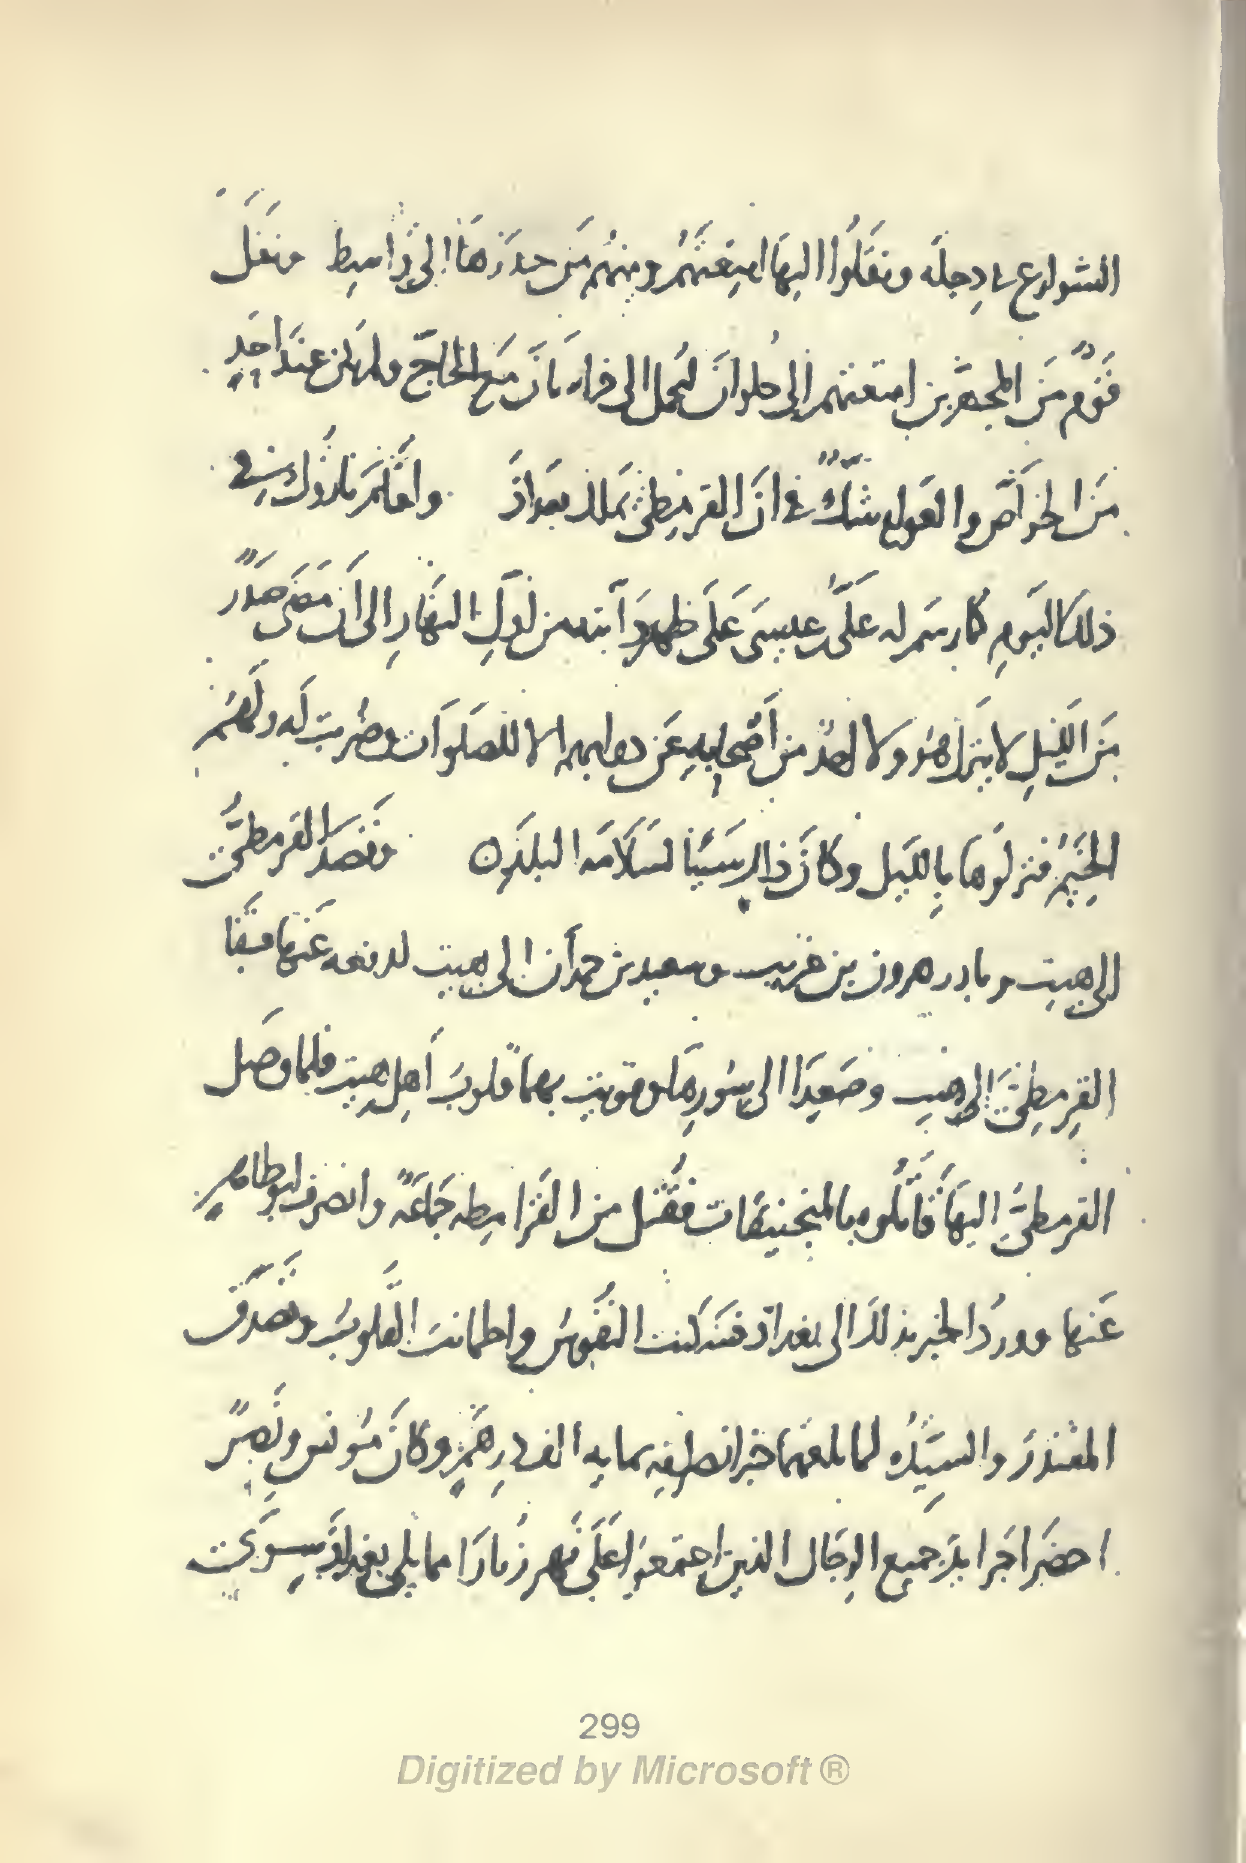 الشوارع في دجله ونقلوا اليها امتعتهم ومنهم من حدرها الى واسط ونقل
قوم من المجهزين امتعتهم الى حلوان لتحمل الى خراسان مع الحاج ولم يكن عند احد
من الخواص والعوام شك في ان القرمطي يملك بغداد واقام نازوك في
ذلك اليوم كما رسم له علي بن عيسى على ظهر دابته من اول النهار الى ان مضى صدر
من الليل لا ينزل هو ولا احد من اصحابه عن دوابهم الا للصلوات وضربت له ولهم
الخيم فنزلوها بالليل وكان ذلك سببا لسلامه البلد ه وقصد القرمطي
الى هيت وبادر هرون بن غريب وسعيد بن حمدان الى هيت لدفعه عنها فسبقا
القرمطي الى هيت وصعدا الى سورها وقويت بهما قلوب اهل هيت فلما وصل
القرمطي اليها قاتلوه بالمنجنيقات فقتل من القرامطه جماعة وانصرف ابو طاهر
عنها وورد الخبر بذلك الى بغداد فسكنت النفوس واطمانت القلوب وتصدق
المقتدر والسيده لما بلغهما خبر انصرافه بمايه الف درهم وكان مونس ونصر
احضرا جرايد جميع الرجال الذين اجتمعوا على نهر زبارا مما يلي بغداد سوى
299
Digitized by Microsoft ®